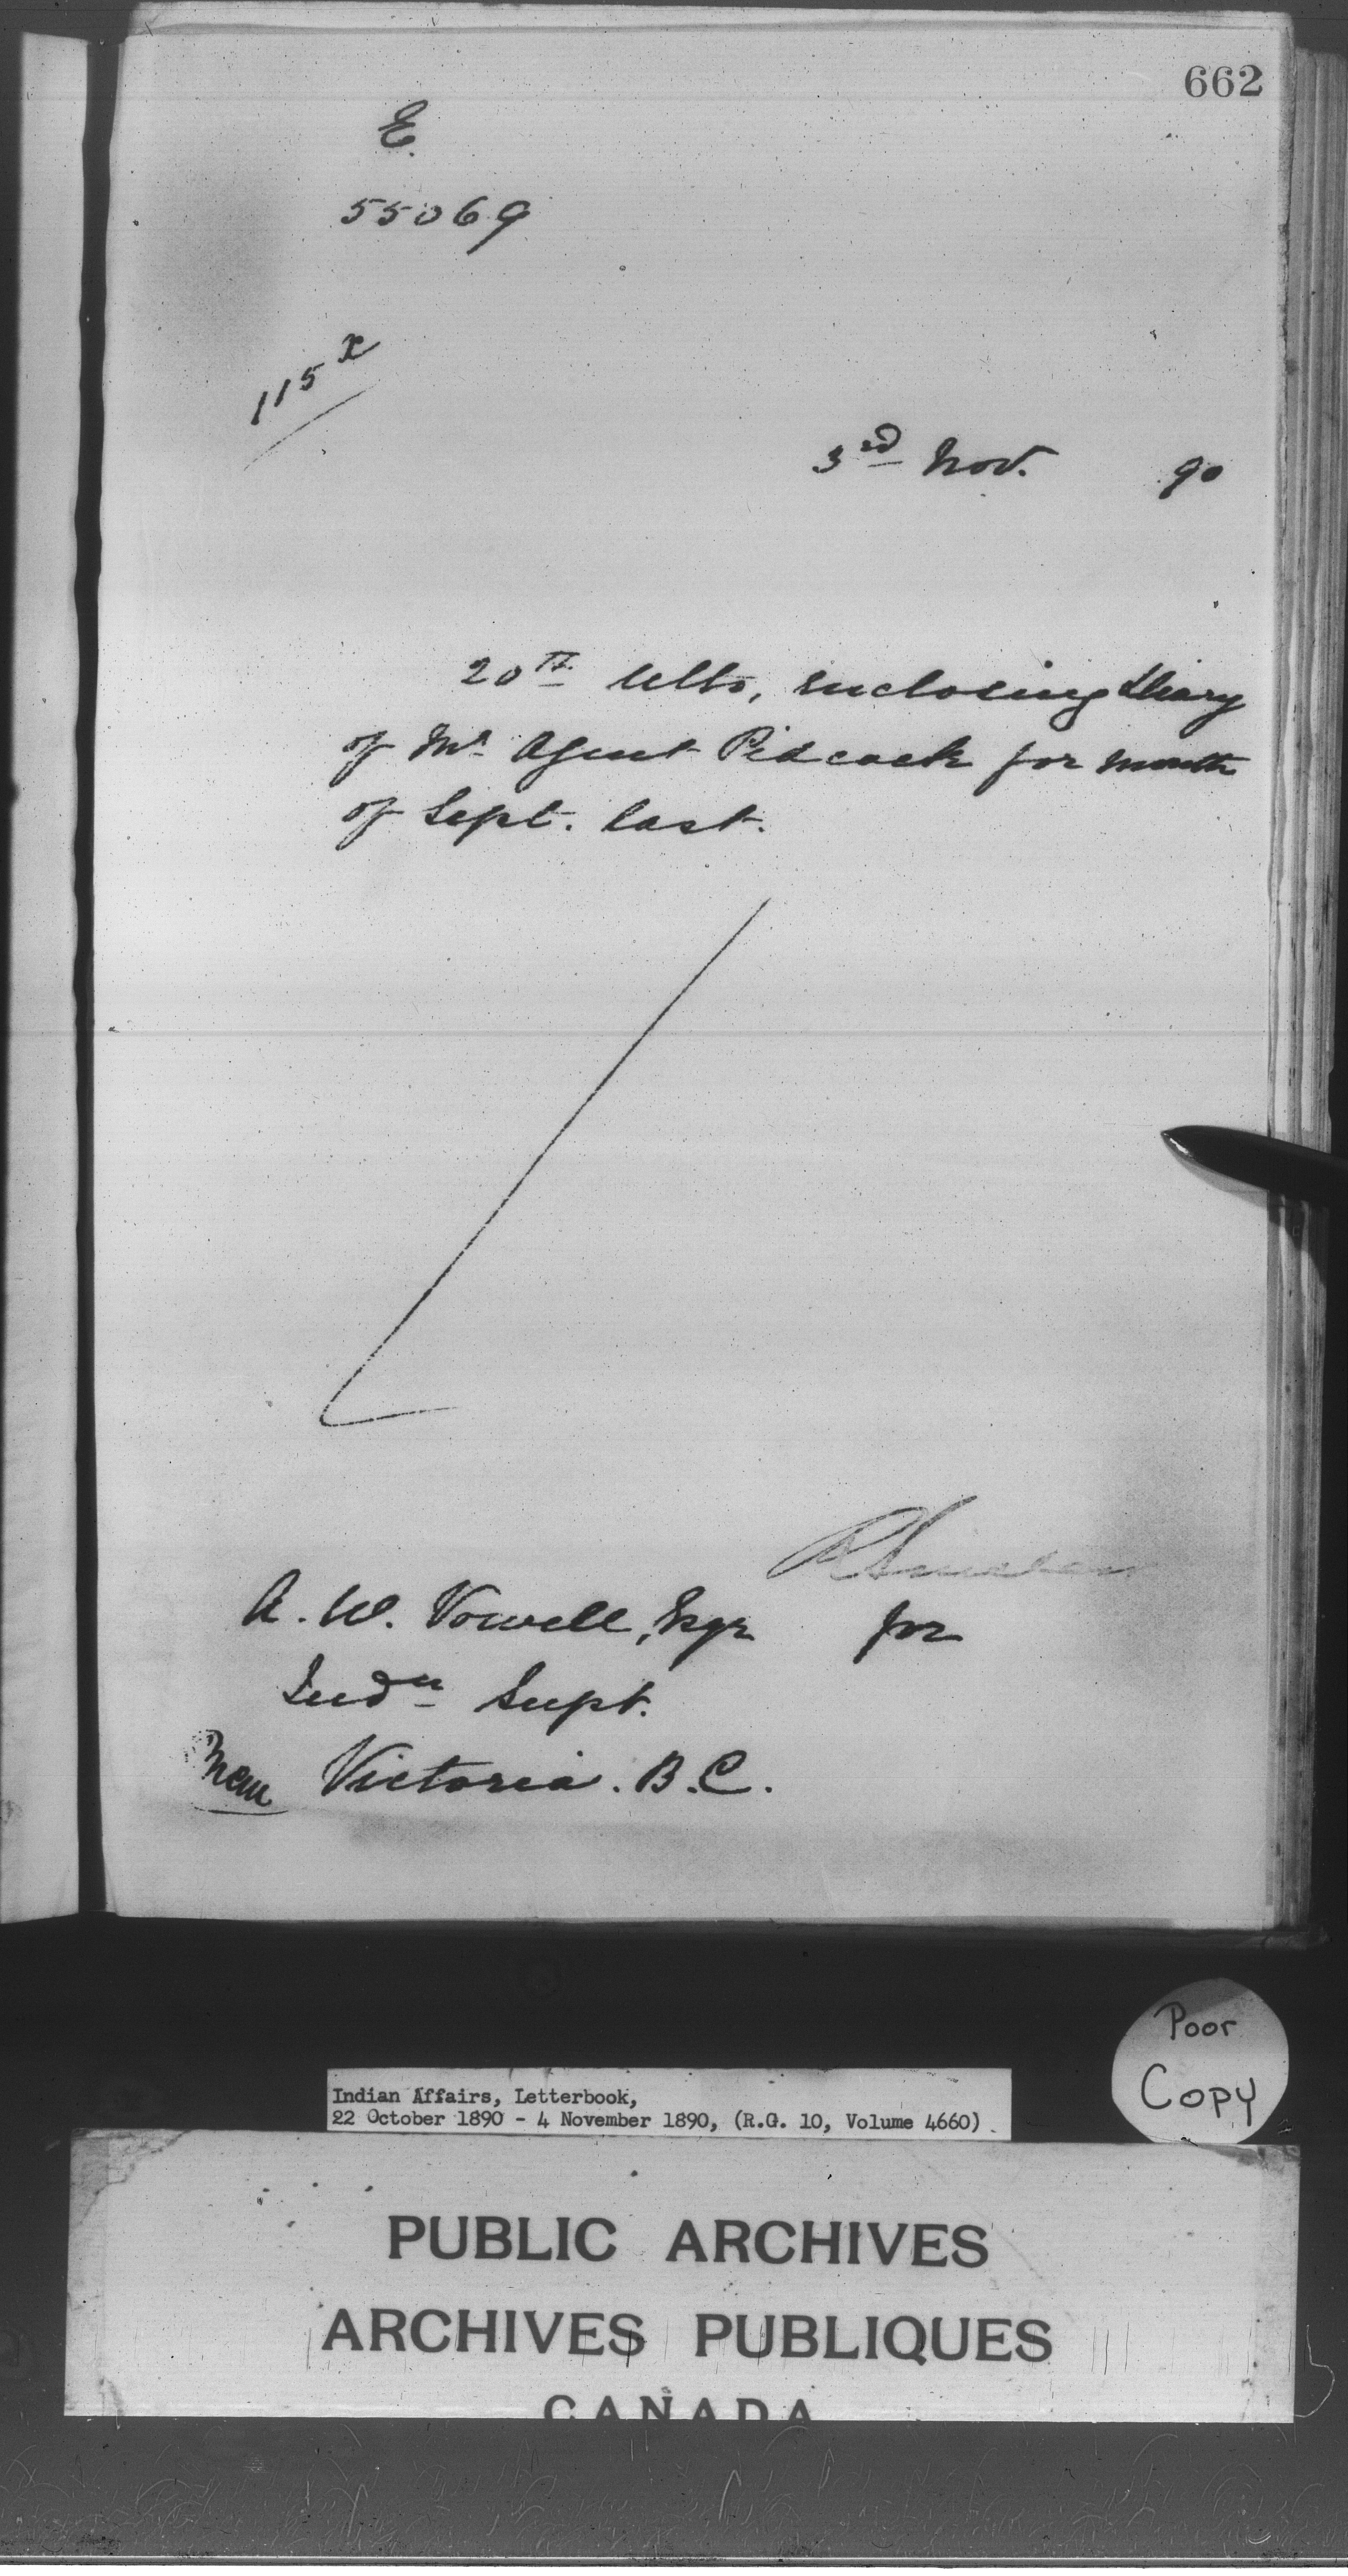 662
E.
55069
115 x
3rd Nov. 90
20th Ulto, inclosing Diary
of Mr Agent Pidcock for month
of Sept. last.
A. W. Vowell, Esqr for
Indn Supt.
Victoria. B.C.
Poor
Copy
Indian Affairs, Letterbook,
22 October 1890 - 4 November 1890, (R.G. 10, Volume 4660)
PUBLIC ARCHIVES
ARCHIVES PUBLIQUES
CANADA